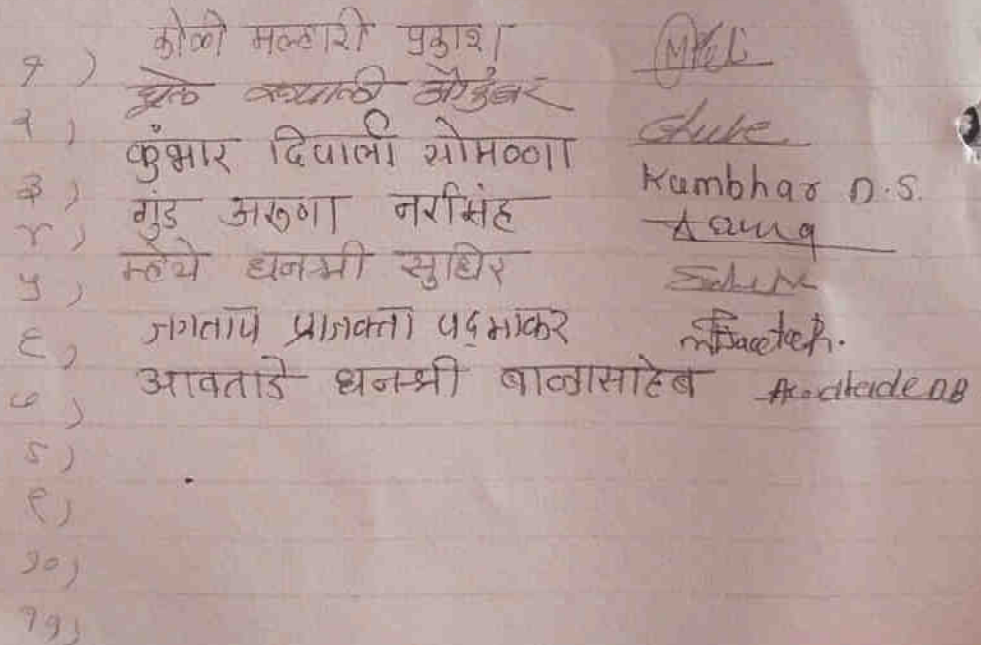 १) कोळी मल्हारी प्रकाश
२) घुले रुपाली औदुंबर
३) कुंभार दिपाली सोमण्णा Kumbhar D.S.
४) गुंड अरुणा नरसिंह Aruna
५) म्हेत्रे धनश्री सुधिर
६) जगताप प्राजक्ता पद्माकर
७) आवताडे धनश्री बाळासाहेब Awatade DB
८)
९)
१०)
११)